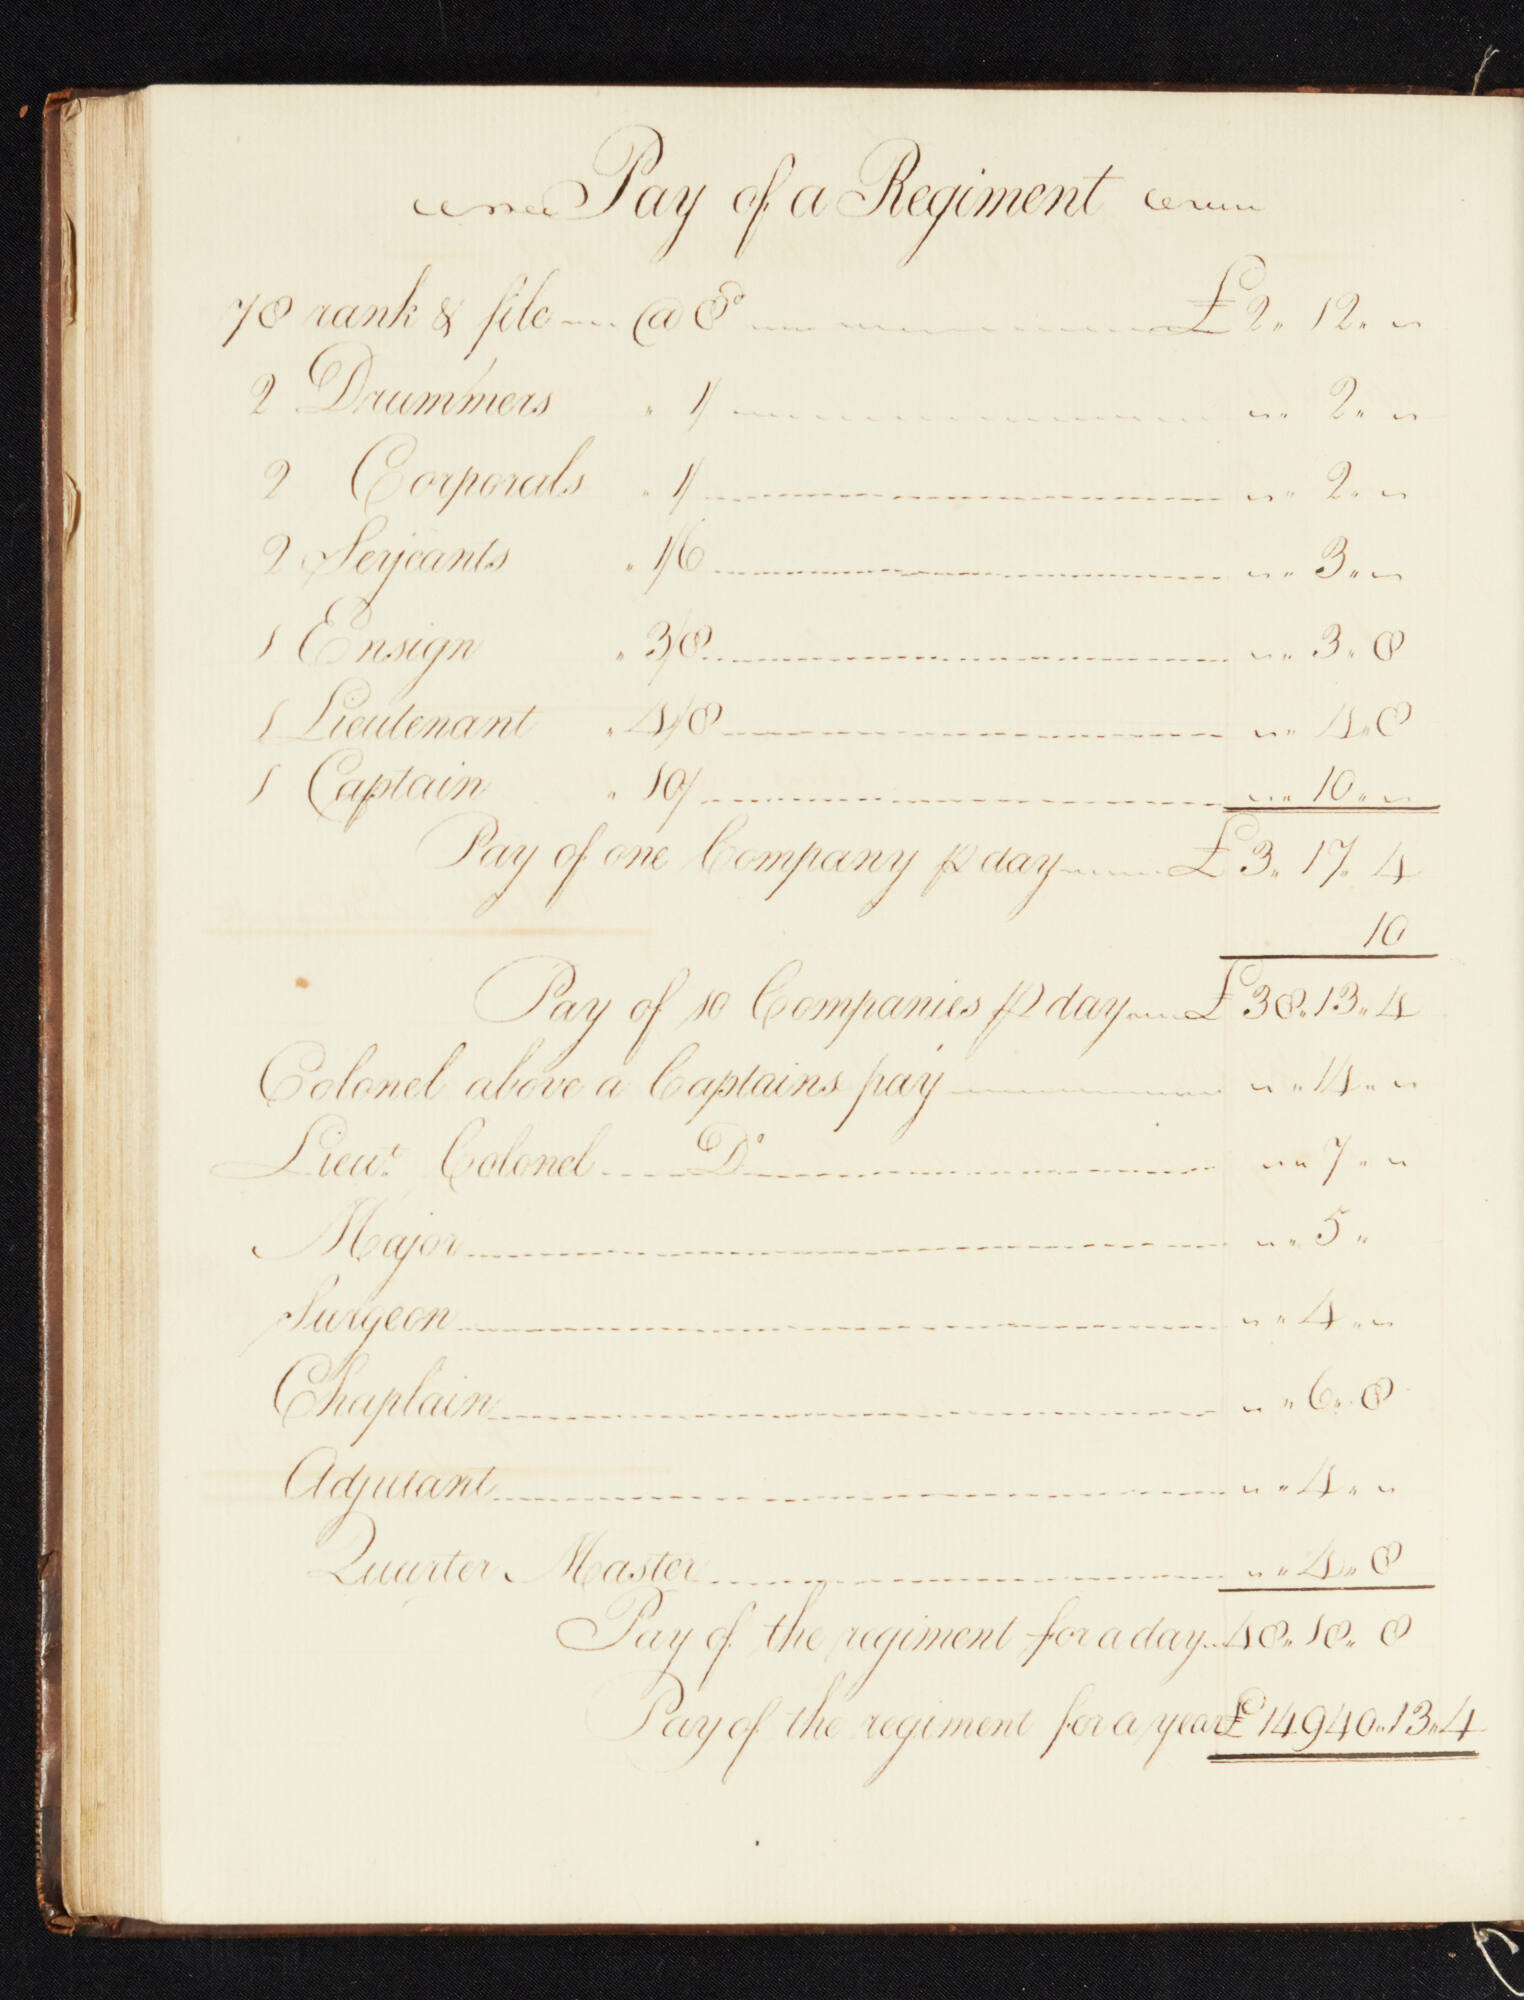 Pay of a Regiment
78 rank & file @ 8d £2 " 12 " "
2 Drummers " 1/ " " 2 " "
2 Corporals " 1/ " " 2 " "
2 Serjeants " 1/6 " " 3 " "
1 Ensign " 3/8 " " 3 " 8
1 Lieutenant " 4/8 " " 4 " 8
1 Captain " 10/ " " 10 " "
Pay of one Company ⅌ day £3 " 17 " 4
10
Pay of 10 Companies ⅌ day £38 " 13 " 4
Colonel above a Captains pay " " 14 " "
Lieut. Colonel Do " " 7 " "
Major " " 5 "
Surgeon " " 4 " "
Chaplain " " 6 " 8
Adjutant " " 4 " "
Quarter Master " " 4 " 8
Pay of the regiment for a day 40 " 18 " 8
Pay of the regiment for a year £14940 " 13 " 4